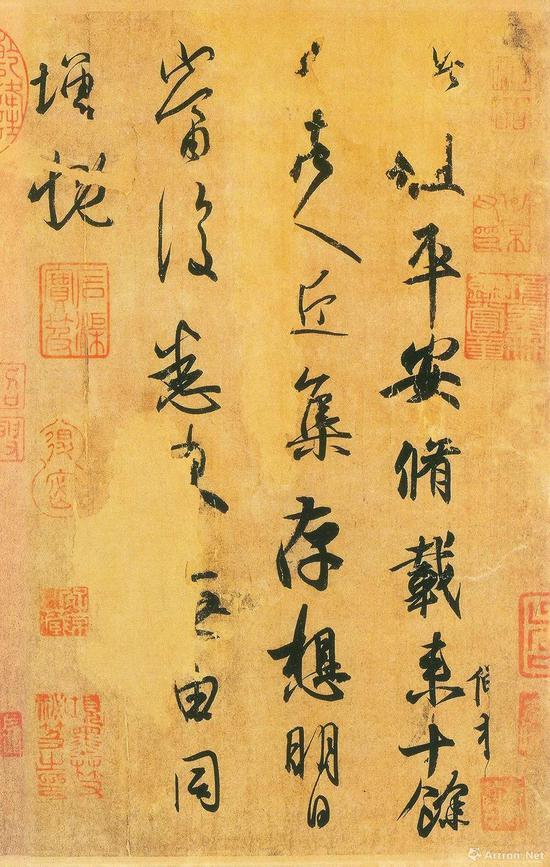 此粗平安脩載來十餘
日諸人近集存想明日
當復悉來無由同
增慨
Artron.Net